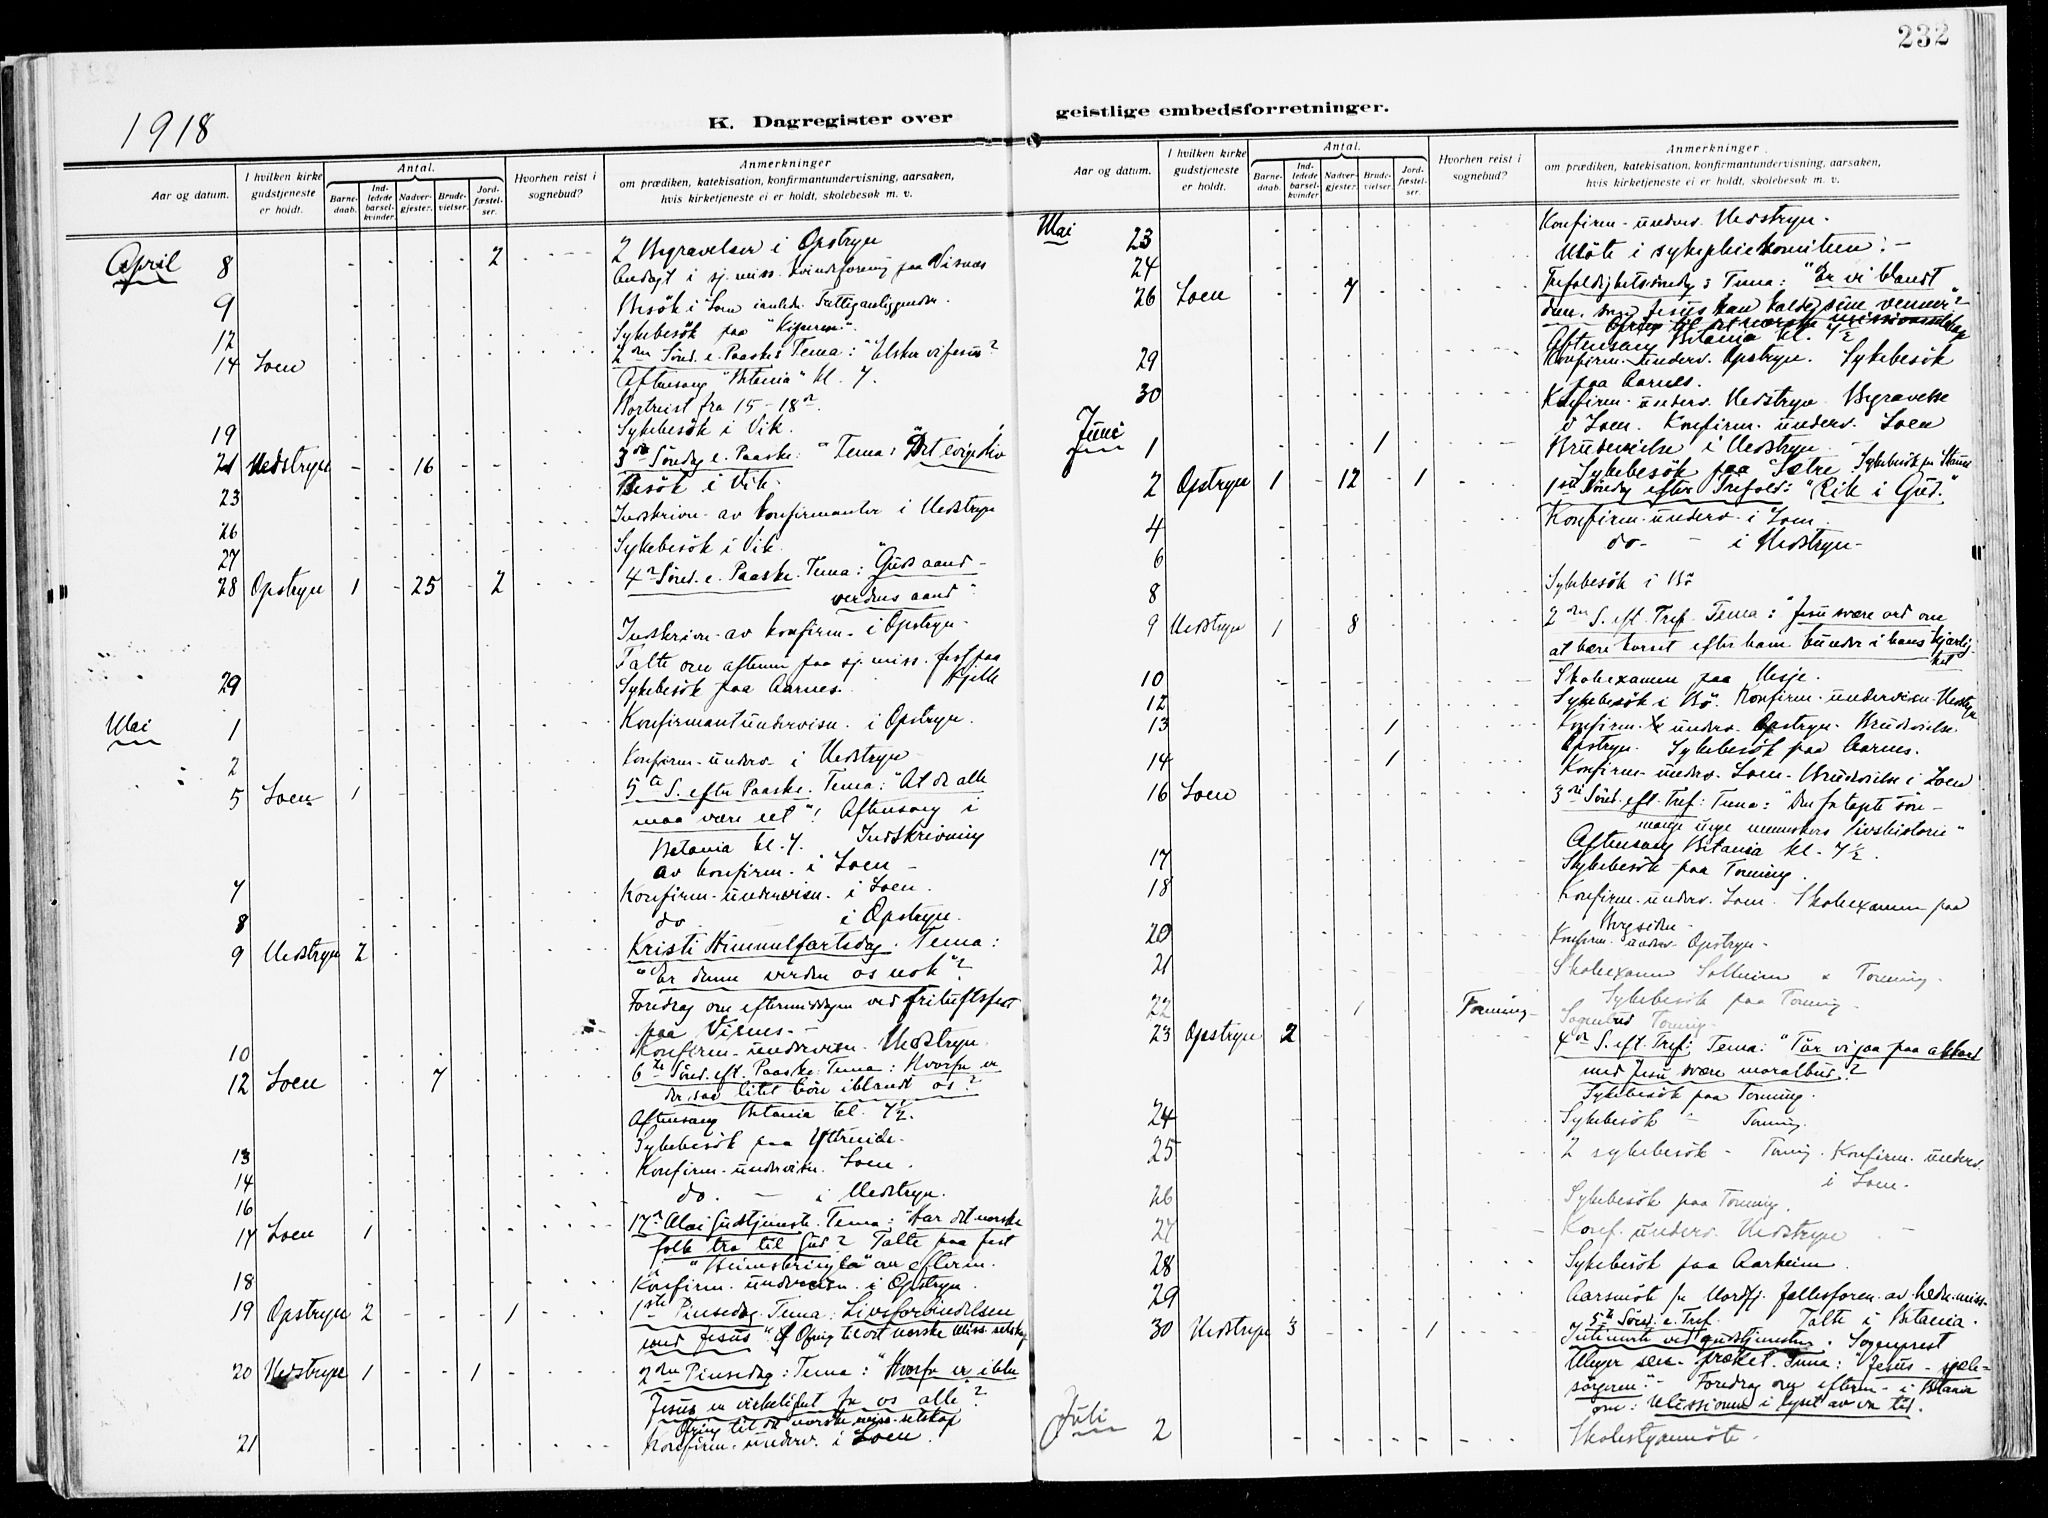 232
1918
K. Dagregister over
geistlige embedsforretninger.
Aar og datum.
I hvilken kirke gudstjeneste er holdt.
Antal.
Barnedaab.
Indledede barselkvinder.
Nadvergjester.
Brudevielser.
Jordfæstelser.
Hvorhen reist i sognebud?
Anmerkninger
om prædiken, katekisation, konfirmantundervisning, aarsaken,
hvis kirketjeneste ei er holdt, skolebesøk m. v.
April 8 2 2 Begravelser i Opstryn
Andagt i sj. miss. kvindeforening paa Visnes
9 Besök i Loen Fattiganliggender.
12 Sykebesök paa
14 Loen 2den Sönd. e. Paaske Tema: "Elsker vi Jesus?
Aftensang "Betania" kl. 7.
Bortreist fra 15-18de.
19 Sykebesök i Vik.
21 Nedstryn 16 3de Søndag e. Paaske: Tema: "Det evige liv
23 Besök i Vik.
26 Indskrivn. av konfirmanter i Nedstryn
27 Sykebesök i Vik.
28 Opstryn 1 25 2 4de Sönd. e. Paaske. Tema: "Guds aand -
verdens aand"
Indskrivn. av konfirm. i Opstryn.
Talte om aftenen paa sj. miss. fest paa
29 Sykebesök paa Aarnes. Gjelle
Mai 1 Konfirmantundervisn. i Opstryn.
2 Konfirm. underv. i Nedstryn
5 Loen 1 5te S. efter Paaske. Tema: "At de alle
maa være eet"! Aftensang i
Betania kl. 7. Indskrivning
av konfirm. i Loen -
7 Konfirm. undervisn. i Loen.
8 do i Opstryn.
9 Nedstryn 2 Kristi Himmelfartsdag. Tema:
"Er denne verden os nok"?
Foredrag om eftermiddagen ved friluftsfest
paa Visnes.
10 Konfirm. undervisn. Nedstryn.
12 Loen 7 6te Sönd. eft. Paaske. Tema: Hvorfor er
der saa litet bön iblandt os?
Aftensang Betania kl. 7½.
13 Sykebesök paa Ytreeide.
14 Konfirm. undervisn. Loen.
16 do. - i Nedstryn.
17 Loen 1 17de Mai Gudstjeneste. Tema: "Har det norske
folk tro til Gud? Talte paa fest
i "Heimskringla" om efterm.
18 Konfirm. undervisn. i Opstryn.
19 Opstryn 2 1 1ste Pinsedag. Tema: Livsforbindelsen
med Jesus". Ofring til det norske Miss. selskap
20 Nedstryn 1 1 2den Pinsedag: Tema: "Hvorfor er ikke
Jesus en virkelighet for os alle?
Ofring til det norske miss. selskap
21 Konfirm. underv. i Loen.
Aar og datum.
I hvilken kirke gudstjeneste er holdt.
Antal.
Barnedaab.
Indledede barselkvinder.
Nadvergjester.
Brudevielser.
Jordfæstelser.
Hvorhen reist i sognebud?
Anmerkninger
om prædiken, katekisation, konfirmantundervisning, aarsaken,
hvis kirketjeneste ei er holdt, skolebesøk m. v.
Mai 23 Konfirm. underv. Nedstryn.
24 Möte i sykepleiekomiteen. -
26 Loen 7 Trefoldighetssöndag: Tema: "Er vi blandt
dem, som Jesus kan kalde sine venner"?
Ofring til det norske missionsselskap
Aftensang Betania kl. 7½
29 Konfirm. underv. Opstryn. Sykebesök
paa Aarnes.
30 Konfirm. underv. Nedstryn. Begravelse
i Loen. Konfirm. underv. Loen
Juni 1 1 Brudevielse i Nedstryn
Sykebesök paa Sætre. Sykebesök
2 Opstryn 1 12 1 1ste Söndag efter Trefold: "Rik i Gud."
4 Konfirm. underv. i Loen
6 do - - i Nedstryn -
8 Sykebesök i Bö
9 Nedstryn 1 8 2den S. eft. Tref. Tema: "Jesu svære ord om
at bære korset efter ham bunder i hans kjærlig-
het
10 Skoleexamen paa
12 Sykebesök i Bö. Konfirm. undervisn. Nedstryn
13 1 Konfirm. underv. Opstryn. Brudevielse
Opstryn. Sykebesök paa Aarnes.
14 1 Konfirm. underv. Loen. Brudevielse i Loen
16 Loen 3die Sönd. eft. Tref: Tema: "Den fortapte sön -
mange unge menneskers livshistorie"
Aftensang Betania kl. 7½.
17 Sykebesök paa Tonning.
18 Konfirm. underv. Loen. Skoleexamen paa
Bergsiden.
20 Konfirm. underv. Opstryn.
21 Skoleexamen Solheim Tonning.
Sykebesök paa Tonning.
22 1 Tonning Sognebud Tonning.
23 Opstryn 2 4de S. eft. Tref: Tema: "Tör vi gaa paa akkord
med Jesu svære moralbud?
Sykebesök paa Tonning.
24 Sykebesök - Tonning.
25 2 sykebesök - Toning. Konfirm. underv.
i Loen.
26 Sykebesök paa Tonning.
27 Konf. underv. Nedstryn
28 Sykebesök paa Aarheim.
29 Aarsmöte for Nordfj. fellesforen. av hedn. miss.
Talte i Betania.
30 Nedstryn 3 1 5te Sönd. e. Tref.
Intimerte ved gudstjenesten. Sogneprest
Meyer sen. præket. Tema: "Jesus - sjæle-
sörgeren." Foredrag om efterm. i Betania
om: Missionen i lyset av vor tid.
Juli 2 Skolestyremöte.